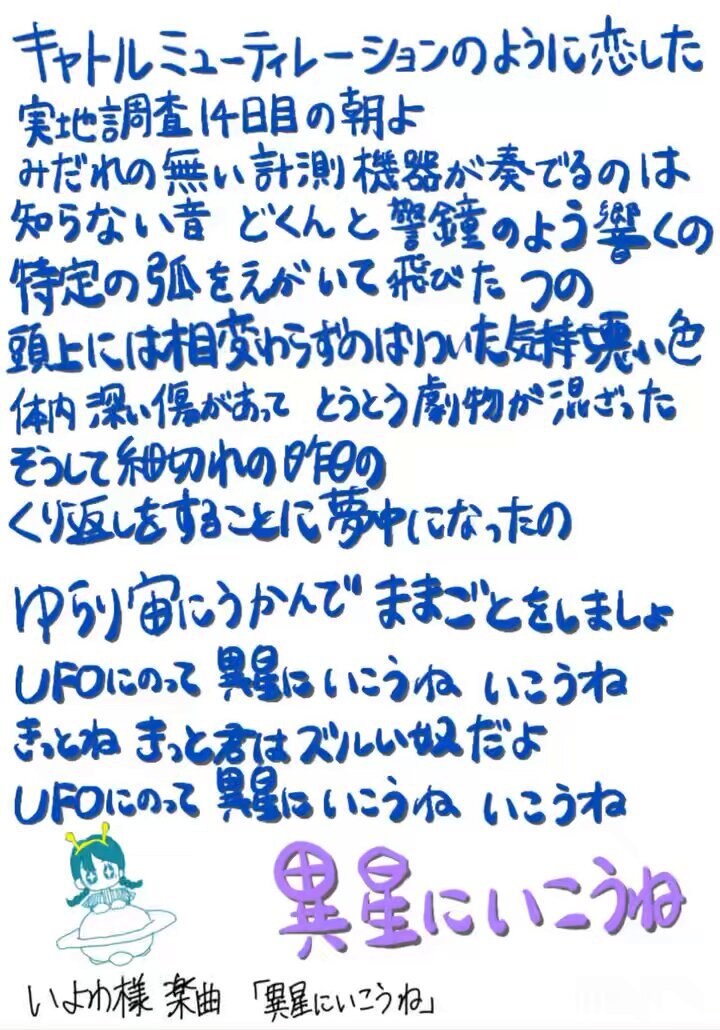 キャトルミューティレーションのように恋した
実地調査14日目の朝よ
みだれの無い計測機器が奏でるのは
知らない音 どくんと警鐘のよう響くの
特定の弧をえがいて飛びたつの
頭上には相変わらずのはりついた気持ち悪い色
体内深い傷があって とうとう劇物が混ざった
そうして細切れの昨日の
くり返しをすることに夢中になったの
ゆらり宙にうかんで ままごとをしましょ
UFOにのって 異星にいこうね いこうね
きっとね きっと君はズルい奴だよ
UFOにのって 異星にいこうね いこうね
異星にいこうね
いよわ様 楽曲 「異星にいこうね」